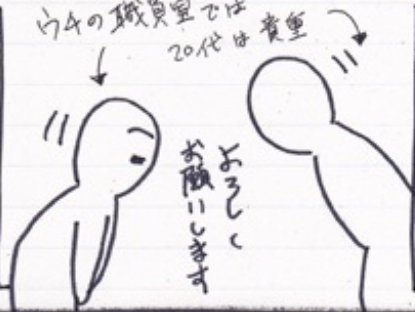 ウチの職員室では
20代は貴重
よろしく
お願いします